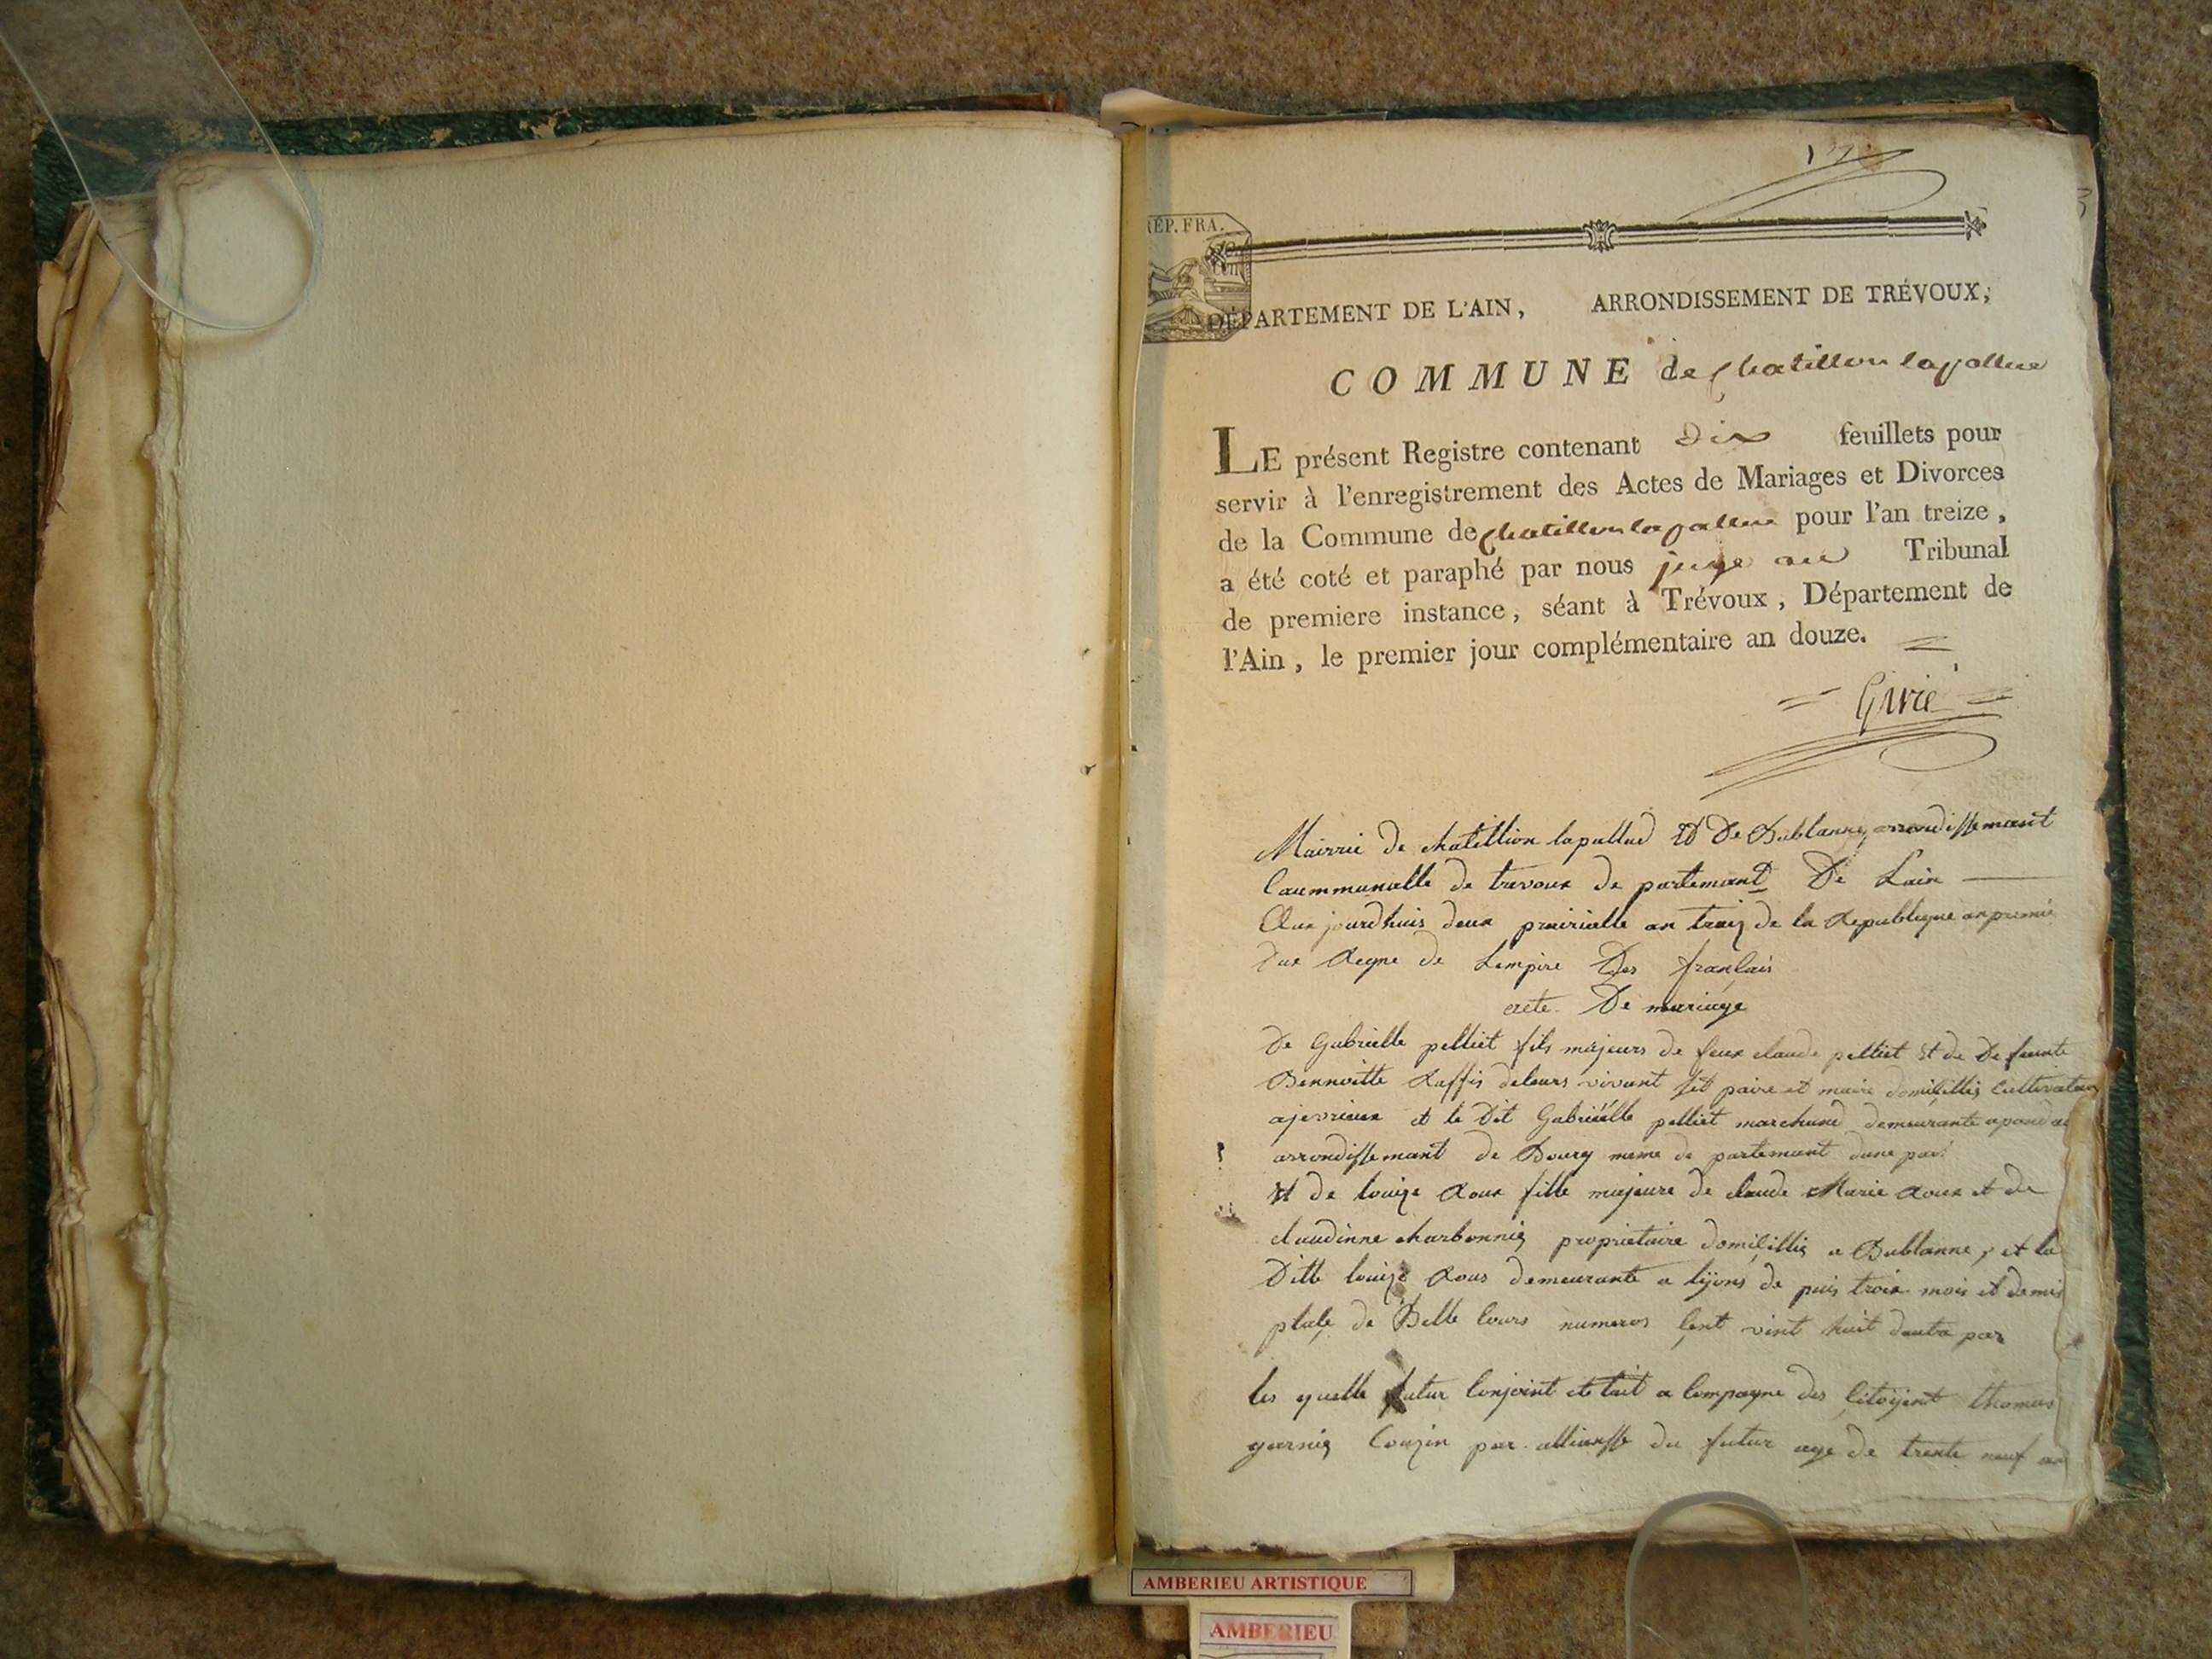 RÉP. FRA.
DÉPARTEMENT DE L'AIN, ARRONDISSEMENT DE TRÉVOUX,
COMMUNE de chatillon lapallue
LE présent Registre contenant Dix feuillets pour
servir à l'enregistrement des Actes de Mariages et Divorces
de la Commune de chatillon lapallue pour l'an treize,
a été coté et paraphé par nous juge au Tribunal
de premiere instance, séant à Trévoux, Département de
l'Ain, le premier jour complémentaire an douze.
Mairrie de chatillion lapallud Et De Bublanne, arrondissemant
Caummunalle de trevoux de partemant De Lain
Aux jourdhuis deux prairialle an treiz de la Republique an premie
Dux Regne de Lempire Des franÇais
acte De mariage
De Gabrielle pelliet fils majeurs de feux claude pelliet Et de De feunte
Bennoitte Raffis deleurs vivant paire et maire domiÇillis Cultivateur
et le Dit Gabriëlle pelliet marchand demeurante
arrondissemant de Bourg meme de partemant dune par
Et de louize Roux fille majeure de claude Marie Roux et de
claudinne charbonnié propriétaire domiÇillis a Bublanne, et la
Ditte louize Roux demeurante a lyons de puis trois mois et demis
plaÇe de Belle Cours numeros Çent vint huit dautre par
les quelle futur Conjoint a Compagne des Çitoÿent thomas
garnié Couzin par alliansse du futur age de trente neuf an
AMBERIEU ARTISTIQUE
AMBERIEU